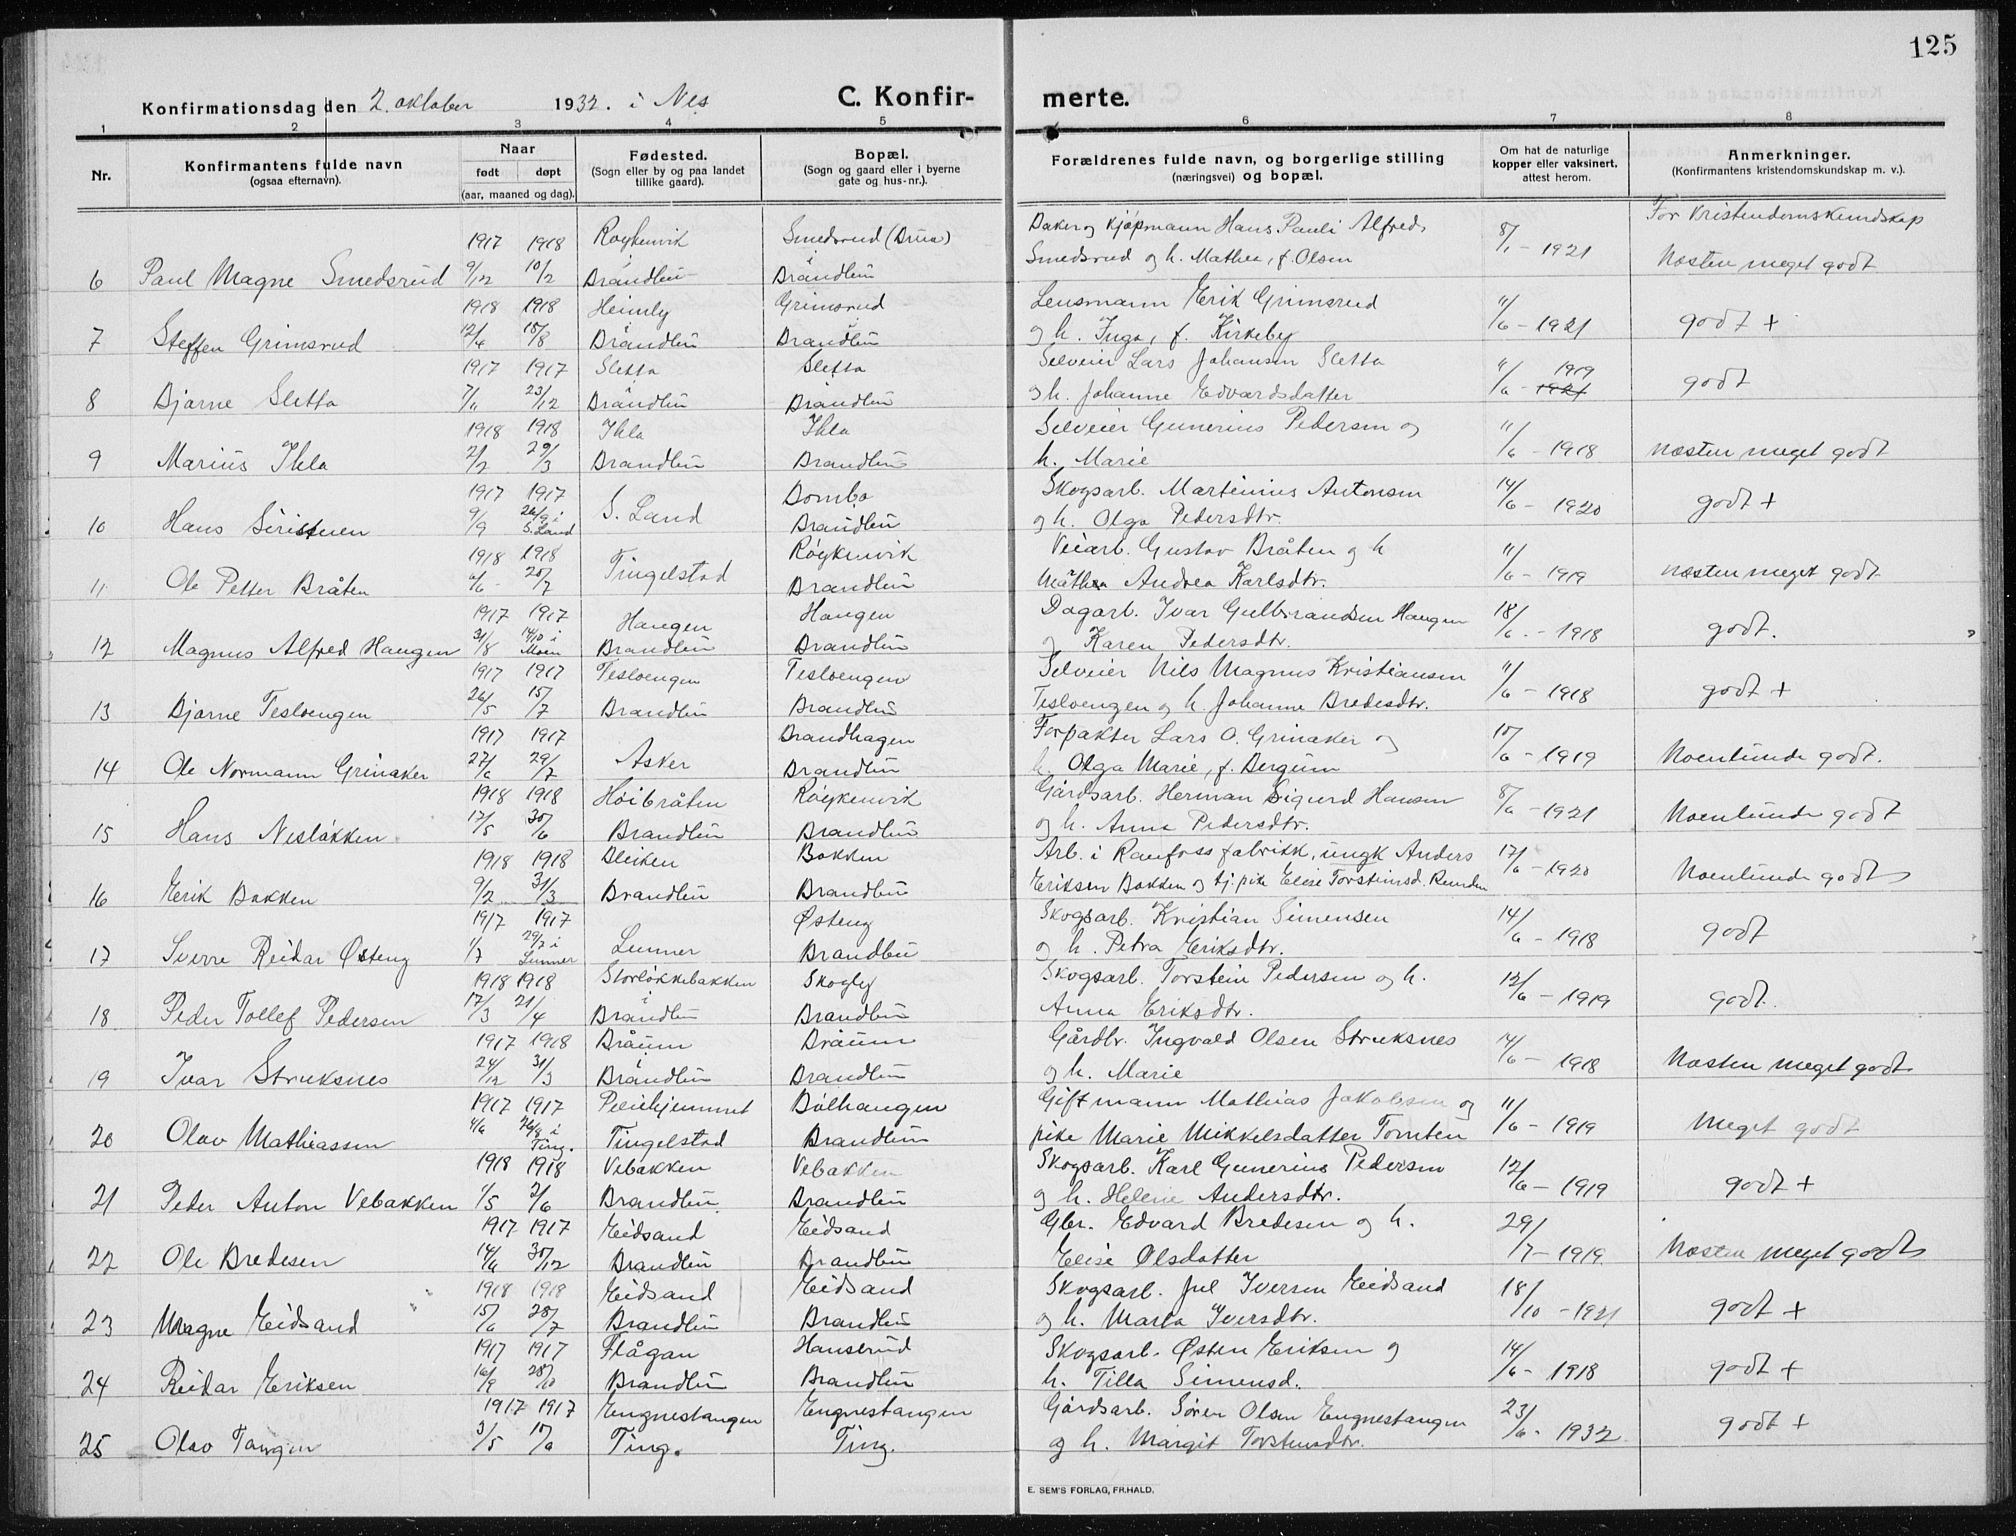 125
Konfirmationsdag den 2. oktober 1932. i Nes C. Konfir- merte.
1 2 3 4 5 6 7 8
Nr. Konfirmantens fulde navn (ogsaa efternavn). Naar født døpt (aar, maaned og dag). Fødested. (Sogn eller by og paa landet tillike gaard). Bopæl. (Sogn og gaard eller i byerne gate og hus-nr.). Forældrenes fulde navn, og borgerlige stilling (næringsvei) og bopæl. Om hat de naturlige kopper eller vaksinert, attest herom. Anmerkninger. (Konfirmantens kristendomskundskap m. v.).
For Kristendomskundskap
1917 1918 Røykenvik Smedsrud (Brua) Baker og Kjøpmann Hans Pauli Alfreds 8/1 - 1921
6 Paul Magne Smedsrud 9/12 10/2 i Brandbu i Brandbu Smedsrud og h. Mathea, f. Olsen Næsten meget godt
1918 1918 Heimly Grimsrud Lensmann Erik Grimsrud
7 Steffen Grimsrud 12/6 18/8 Brandbu Brandbu og h. Inga, f. Kirkeby 11/6 - 1921 godt +
1917 1917 Sletta Sletta Selveier Lars Johansen Sletta 1919
8 Bjarne Sletta 7/11 23/12 i Brandbu i Brandbu og h. Johanne Edvardsdatter 11/6 - 1921 godt
1918 1918 Ihla Ihla Selveier Gunerius Pedersen og
9 Marius Ihla 2/2 29/3 Brandbu Brandbu h. Marie 11/6 - 1918 næsten meget godt
1917 1917 S. Land Bomba Skogsarb. Martinius Antonsen
10 Hans Siristuen 9/9 26/9 i S. Land Brandbu og h. Olga Pedersdtr. 14/6 - 1920 godt +
1918 1918 Tingelstad Røykenvik Veiarb. Gustav Bråten og h
11 Ole Petter Bråten 6/6 - 20/7 Brandbu Mathea Andrea Karlsdtr. 11/6 - 1919 næsten meget godt
1917 1917 Haugen Haugen Dagarb. Ivar Gulbrandsen Haugen
12 Magnus Alfred Haugen 31/8 14/10 i Moen Brandbu Brandbu og Karen Pedersdtr. 18/6. - 1918 godt.
1917 1917 Tesloengen Tesloengen Selveier Nils Magnus Kristiansen
13 Bjarne Tesloengen 26/5 15/7 Brandbu Brandbu Tesloengen og h. Johanne Bredesdtr. 11/6 - 1918 godt +
1917 1917 Asker Brandhagen Forpakter Lars O. Grinaker og
14 Ole Normann Grinaker 27/6 29/7 Brandbu h. Olga Marie, f. Bergum 10/6 - 1919 Noenlunde godt.
1918 1918 Høibråten Røykenvik Gårdsarb. Herman Sigurd Hansen
15 Hans Nesløkken 17/5 30/6 Brandbu Brandbu og h. Anna Pedersdtr. 8/6 - 1921 Noenlunde godt
1918 1918 Bleiken Bakken Arb. i Raufoss fabrikk, ungk Anders
16 Erik Bakken 9/2 31/3 Brandbu Brandbu Eriksen Bakken og tj. pike Elise Torsteinsd. Runden 17/6 - 1920 Noenlunde godt
1917 1917 Østeng Skogsarb. Kristian Simensen
17 Sverre Reidar Østeng 1/7 29/7 i Lunner Lunner Brandbu og h. Petra Eriksdtr. 14/6 - 1918 godt
1918 1918 Storløkkebakken Skogly Skogsarb. Torstein Pedersen og h.
18 Peder Tollef Pedersen 17/3 21/4 i Brandbu Brandbu Anna Eriksdtr. 12/6 - 1919 godt.
1917 1918 Bråum Bråum Gårdbr. Ingvald Olsen Struksnes
19 Ivar Struksnes 24/12 31/3 i Brandbu Brandbu og h. Marie 14/6 - 1918 Næsten meget godt
1917 1917 Pleiehjemmet Bølhaugen Gift mann Mathias Jakobsen og
20 Olav Mathiassen 4/6 26/8 i Ting. Tingelstad Brandbu pike Marie Mikkelsdatter Tomten 11/6 - 1919 Meget godt
1918 1918 Vebakken Vebakken Skogsarb. Karl Gunerius Pedersen
21 Peder Anton Vebakken 1/5 2/6 Brandbu Brandbu og h. Helene Andersdtr. 12/6 - 1919 godt +
1917 1917 Eidsand Eidsand Gbr. Edvard Bredesen og h.
22 Ole Bredesen 14/11 30/12 Brandbu Brandbu Elise Olsdatter 29/7 - 1919. Næsten meget godt
1918 1918 Eidsand Eidsand Skogsarb. Jul Iversen Eidsand
23 Magne Eidsand 15/6 28/7 Brandbu Brandbu og h. Marta Iversdtr. 18/10 - 1921 godt +
1917 1917 Flågan Hanserud Skogsarb. Østen Eriksen og
24 Reidar Eriksen 16/9 28/10 Brandbu Brandbu h. Tilla Simensd. 14/6 - 1918 godt +
1917 1917 Engnestangen Engnestangen Gårdsarb. Søren Olsen Engnestangen
25 Olav Tangen 3/5 10/6 Ting. Ting. og h. Margit Torstensdtr. 23/6. - 1932 godt +
E. SEM'S FORLAG, FR.HALD.